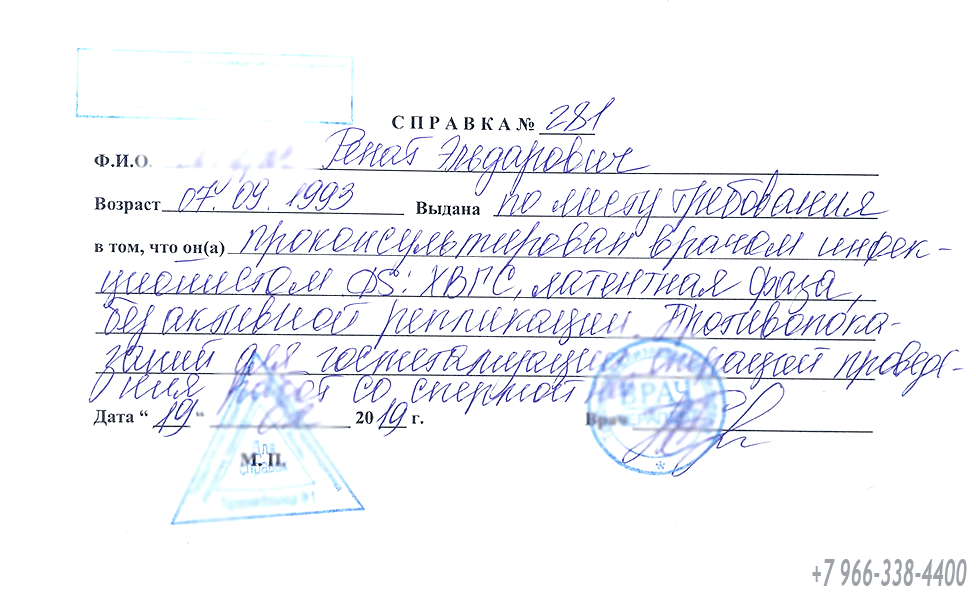 СПРАВКА № 281
Ф.И.О. Ренат Эльдарович
Возраст 07.09.1993 Выдана по месту требования
в том, что он(а) проконсультирован врачом инфек-
ционистом DS: ХВГС, латентная фаза,
без активной репликации. Противопока-
заний для госпитализации, операций, проведе-
ния работ со спермой
Дата “ 19 “ 2019 г. Врач
ВРАЧ
Для
справок
М. П.
+7 966-338-4400